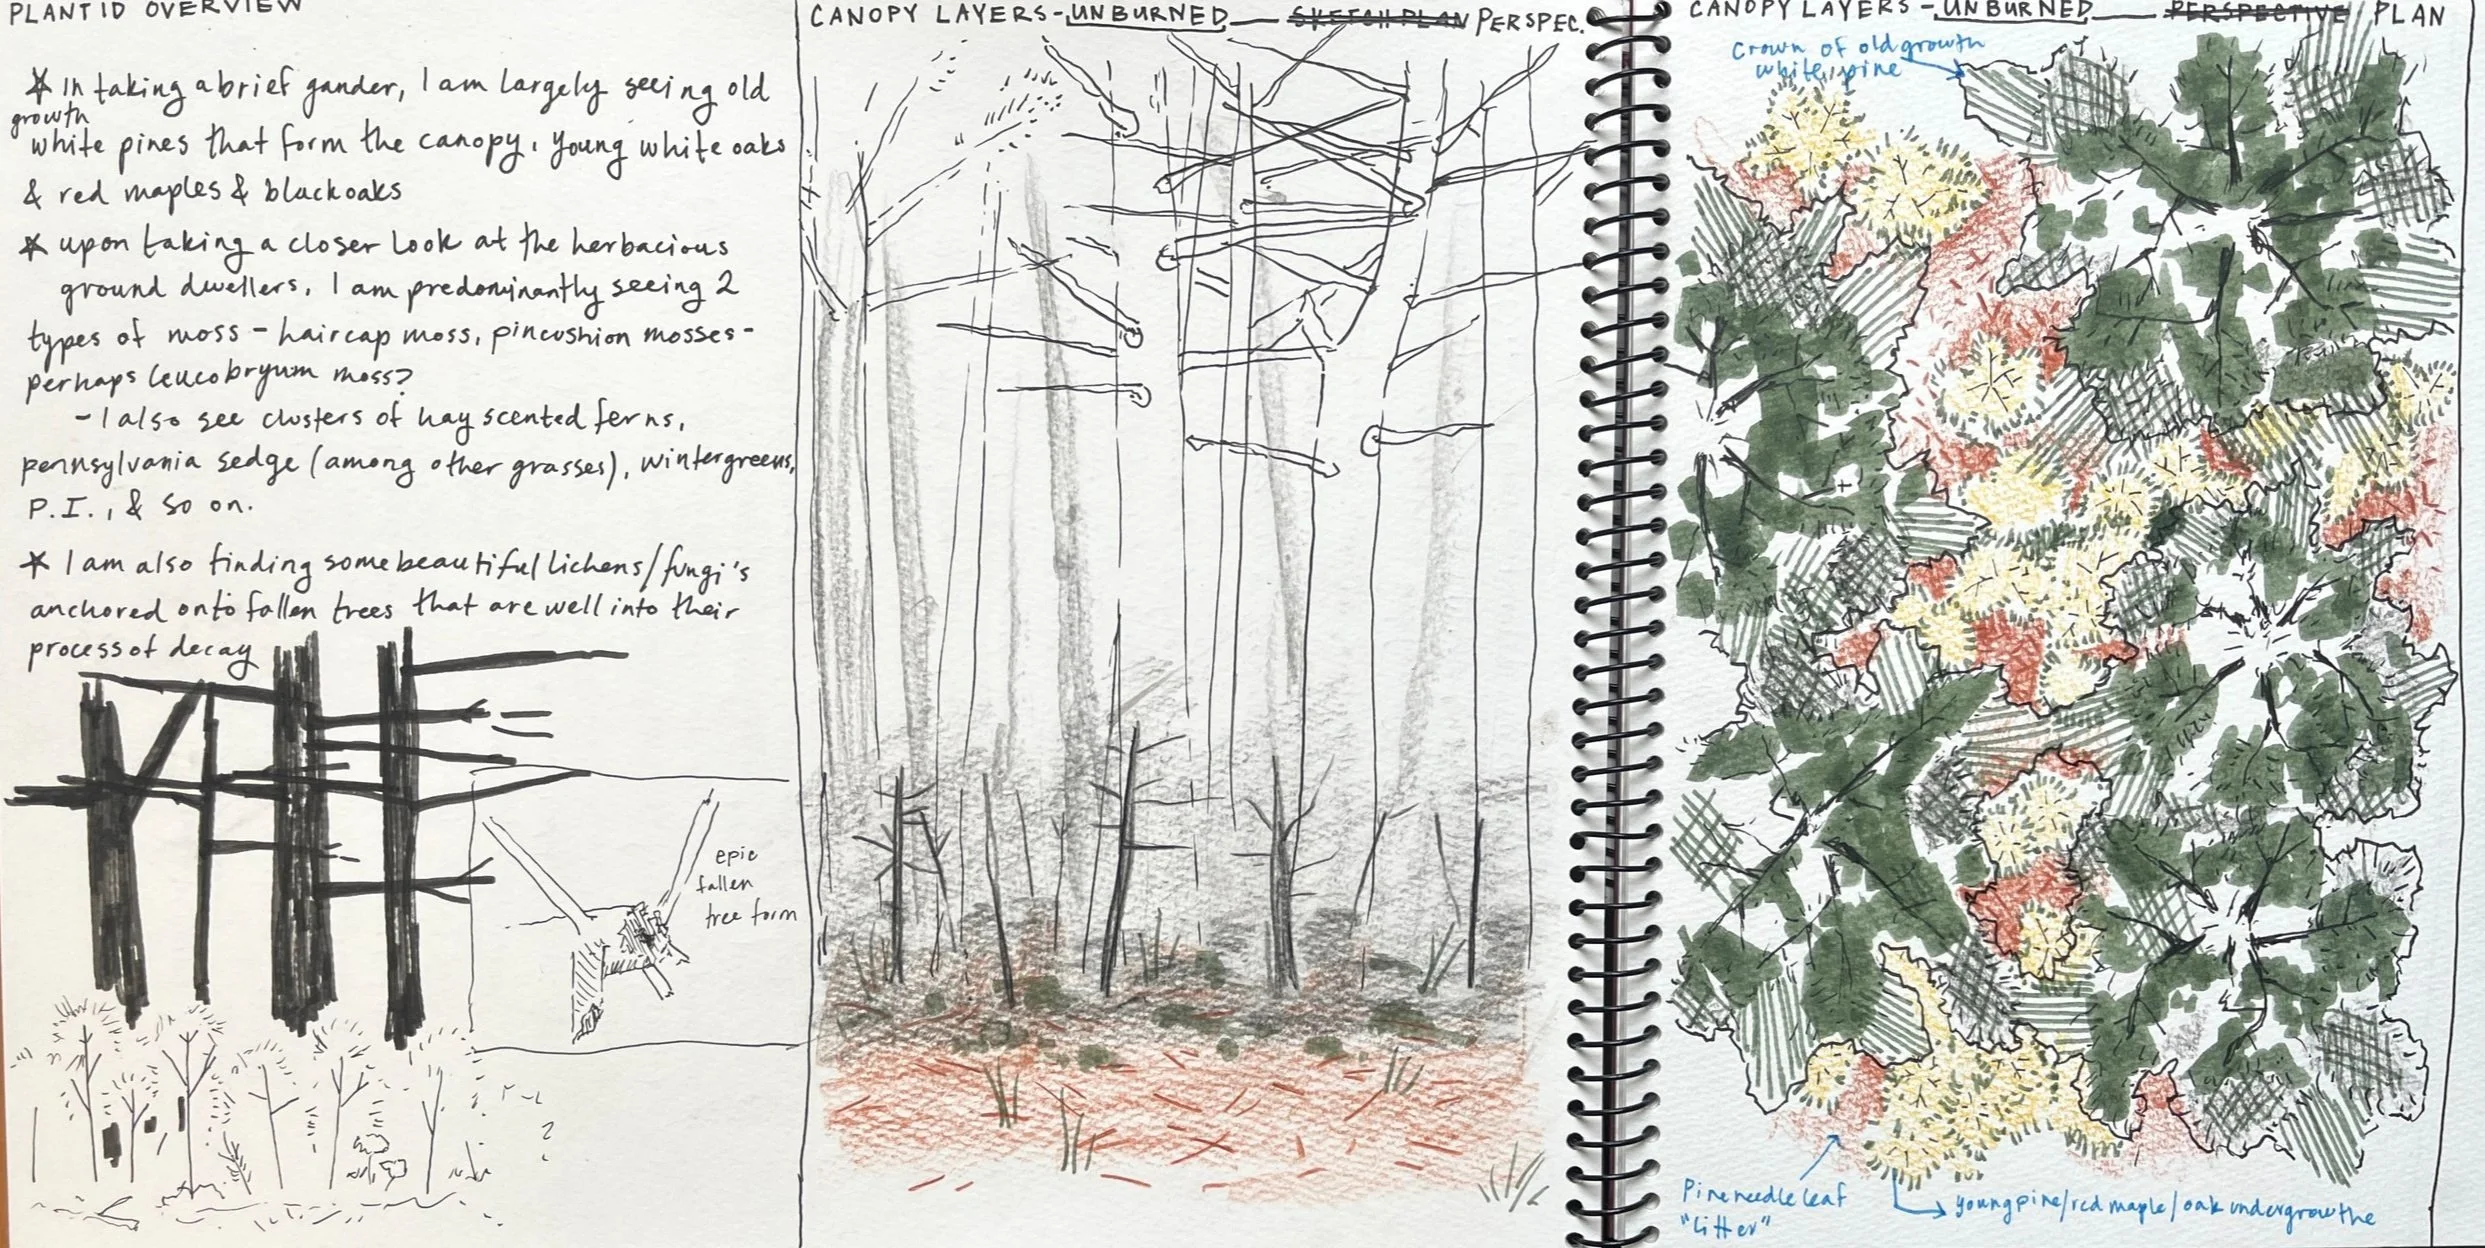 PLANT ID OVERVIEW
* In taking a brief gander, I am largely seeing old
growth
white pines that form the canopy, young white oaks
& red maples & black oaks
* upon taking a closer look at the herbacious
ground dwellers, I am predominantly seeing 2
types of moss - haircap moss, pincushion mosses -
perhaps leucobryum moss?
- I also see clusters of hay scented ferns,
pennsylvania sedge (among other grasses), wintergreens,
P.I., & so on.
* I am also finding some beautiful lichens/fungi's
anchored onto fallen trees that are well into their
process of decay
epic
fallen
tree form
CANOPY LAYERS - UNBURNED SKETCH PLAN PERSPEC.
CANOPY LAYERS - UNBURNED PERSPECTIVE PLAN
Crown of old growth
white pine
Pine needle leaf
"litter"
young pine/red maple/oak undergrowthe